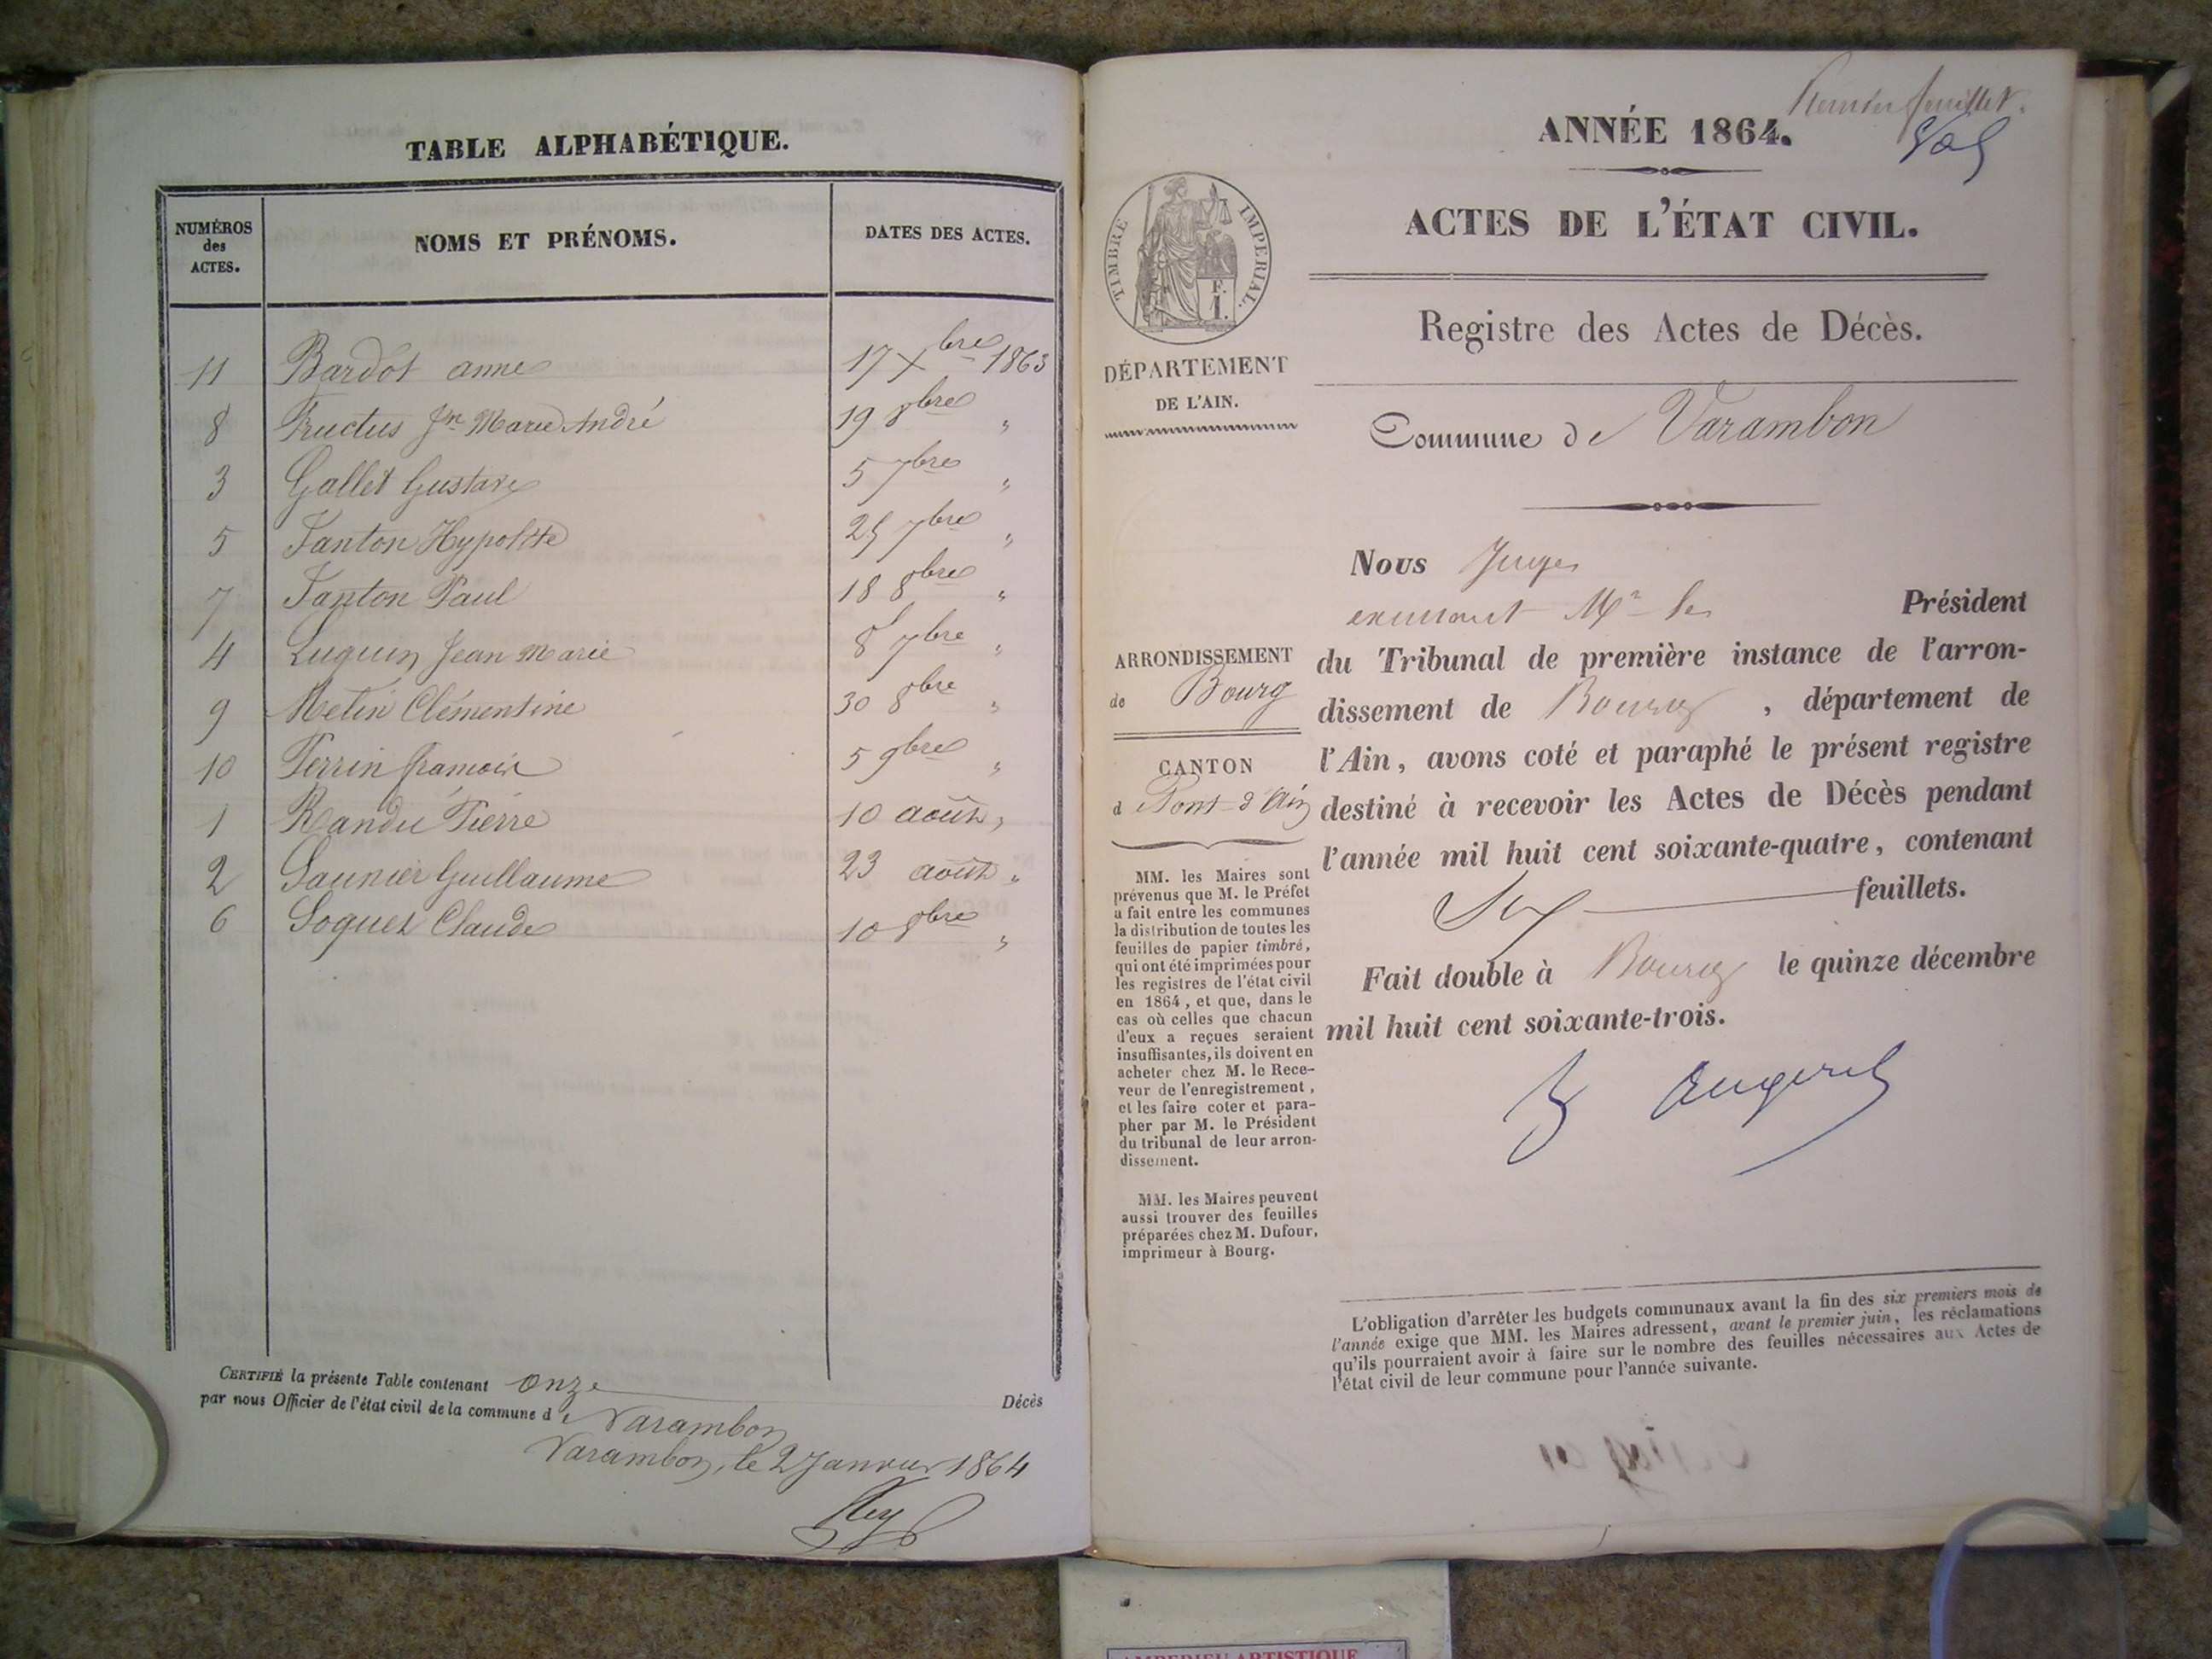 TABLE ALPHABÉTIQUE.
NUMÉROS des ACTES.
NOMS ET PRÉNOMS.
DATES DES ACTES.
11 Bardot anne 17 Xbre 1863
8 Fructus Jn Marie André 19 8bre "
3 Gallet Gustave 5 7bre "
5 Janton Hypolite 25 7bre "
7 Janton Paul 18 8bre "
4 Luquin Jean Marie 8 7bre "
9 Metin Clémentine 30 8bre "
10 Perrin françois 5 9bre "
1 Randu Pierre 10 août "
2 Saunier Guillaume 23 août "
6 Soquet Claude 10 8bre "
CERTIFIÉ la présente Table contenant onze Décès
par nous Officier de l'état civil de la commune de Varambon
Varambon, le 2 Janvier 1864
Rey
Premier feuillet.
ANNÉE 1864.
ACTES DE L'ÉTAT CIVIL.
TIMBRE IMPERIAL.
F.
1.
Registre des Actes de Décès.
DÉPARTEMENT
DE L'AIN.
Commune de Varambon
ARRONDISSEMENT
de Bourg
CANTON
d Pont-d'Ain
MM. les Maires sont
prévenus que M. le Préfet
a fait entre les communes
la distribution de toutes les
feuilles de papier timbré,
qui ont été imprimées pour
les registres de l'état civil
en 1864, et que, dans le
cas où celles que chacun
d'eux a reçues seraient
insuffisantes, ils doivent en
acheter chez M. le Rece-
veur de l'enregistrement,
et les faire coter et para-
pher par M. le Président
du tribunal de leur arron-
dissement.
MM. les Maires peuvent
aussi trouver des feuilles
préparées chez M. Dufour,
imprimeur à Bourg.
Nous Juge
Mr le Président
du Tribunal de première instance de l'arron-
dissement de Bourg, département de
l'Ain, avons coté et paraphé le présent registre
destiné à recevoir les Actes de Décès pendant
l'année mil huit cent soixante-quatre, contenant
Six feuillets.
Fait double à Bourg le quinze décembre
mil huit cent soixante-trois.
L'obligation d'arrêter les budgets communaux avant la fin des six premiers mois de
l'année exige que MM. les Maires adressent, avant le premier juin, les réclamations
qu'ils pourraient avoir à faire sur le nombre des feuilles nécessaires aux Actes de
l'état civil de leur commune pour l'année suivante.
AMBERIEU ARTISTIQUE